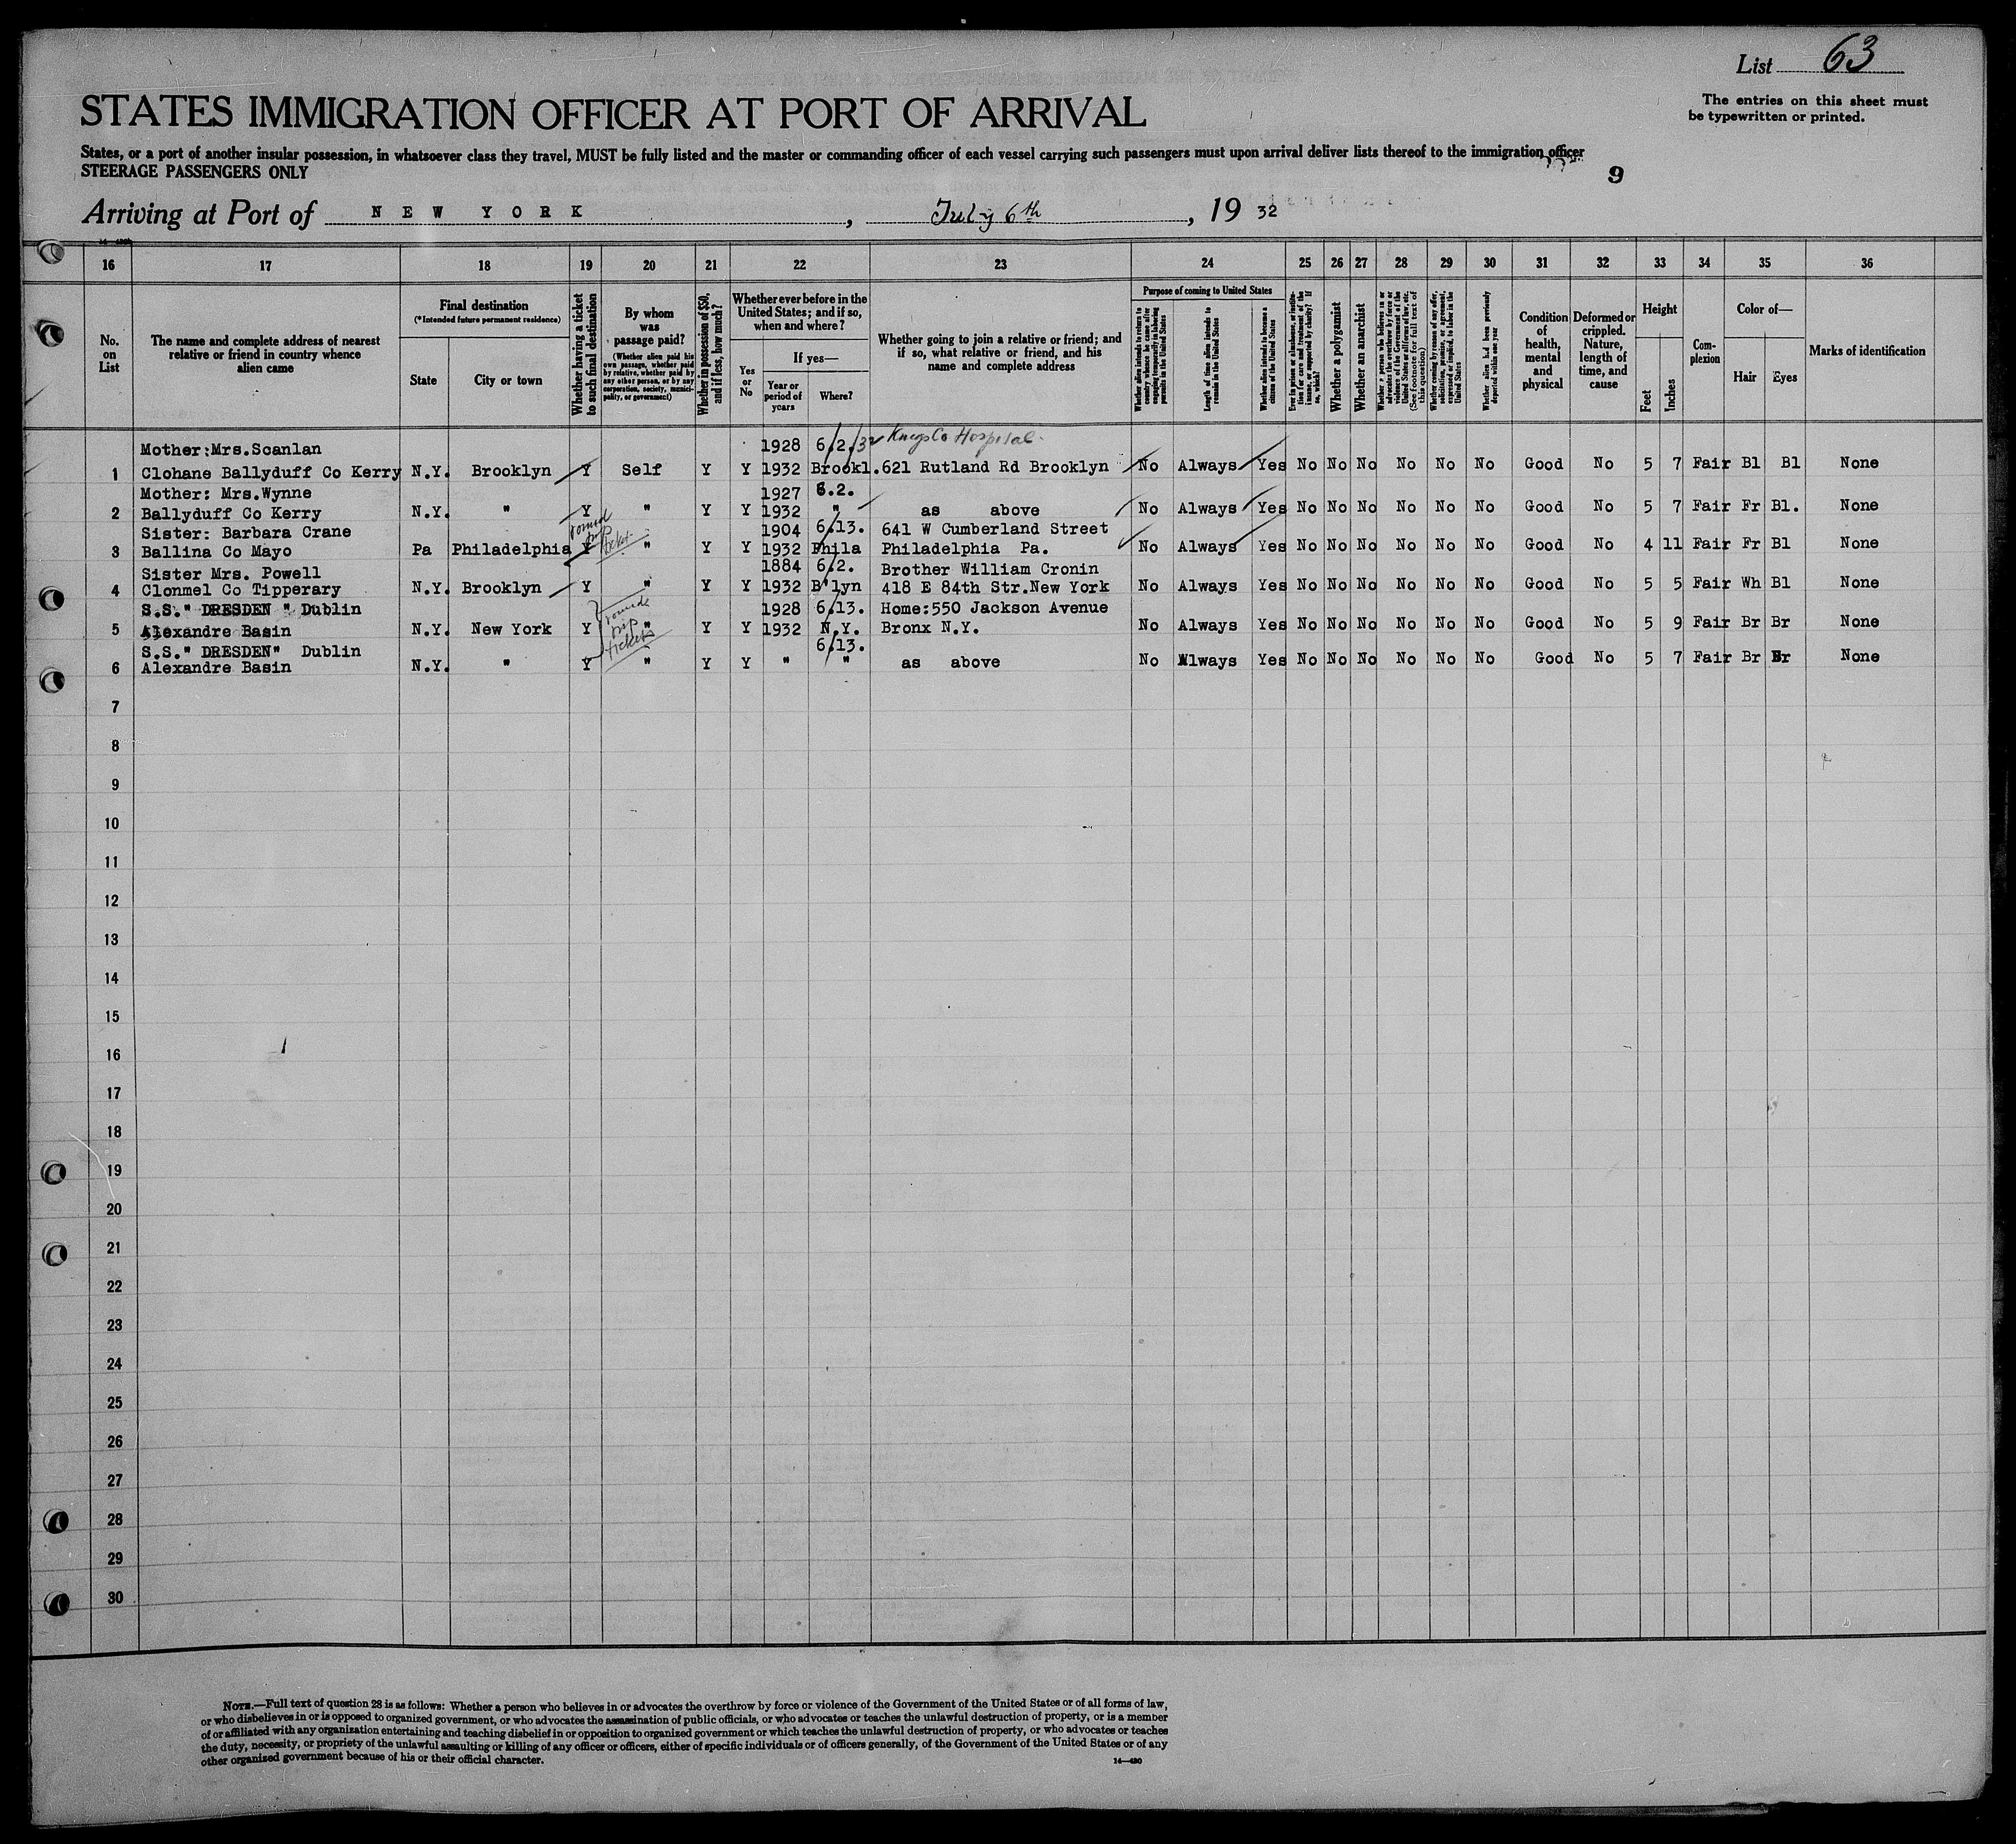 List 63
The entries on this sheet must
be typewritten or printed.
STATES IMMIGRATION OFFICER AT PORT OF ARRIVAL
States, or a port of another insular possession, in whatsoever class they travel, MUST be fully listed and the master or commanding officer of each vessel carrying such passengers must upon arrival deliver lists thereof to the immigration officer
STEERAGE PASSENGERS ONLY
9
Arriving at Port of NEW YORK, July 6th, 1932
16 17 18 19 20 21 22 23 24 25 26 27 28 29 30 31 32 33 34 35 36
No. on List
The name and complete address of nearest relative or friend in country whence alien came
Final destination
(*Intended future permanent residence)
State
City or town
Whether having a ticket to such final destination
By whom was passage paid?
(Whether alien paid his own passage, whether paid by relative, whether paid by any other person, or by any corporation, society, municipality, or government)
Whether in possession of $50, and if less, how much?
Whether ever before in the United States; and if so, when and where?
Yes or No
If yes—
Year or period of years
Where?
Whether going to join a relative or friend; and if so, what relative or friend, and his name and complete address
Purpose of coming to United States
Whether alien intends to return to country whence he came after engaging temporarily in laboring pursuits in the United States
Length of time alien intends to remain in the United States
Whether alien intends to become a citizen of the United States
Ever in prison or almshouse, or institution for care and treatment of the insane, or supported by charity? If so, which?
Whether a polygamist
Whether an anarchist
Whether a person who believes in or advocates the overthrow by force or violence of the Government of the United States or all forms of law, etc. (See footnote for full text of this question)
Whether coming by reason of any offer, solicitation, promise, or agreement, expressed or implied, to labor in the United States
Whether alien had been previously deported within one year
Condition of health, mental and physical
Deformed or crippled. Nature, length of time, and cause
Height
Feet
Inches
Complexion
Color of—
Hair
Eyes
Marks of identification
Mother:Mrs.Scanlan 1928 6.2.32 Kings Co Hospital
1 Clohane Ballyduff Co Kerry N.Y. Brooklyn Y Self Y Y 1932 Brookl. 621 Rutland Rd Brooklyn No Always Yes No No No No No No Good No 5 7 Fair Bl Bl None
Mother: Mrs.Wynne 1927 6.2.
2 Ballyduff Co Kerry N.Y. " Y " Y Y 1932 " as above No Always Yes No No No No No No Good No 5 7 Fair Fr Bl. None
round trip ticket
Sister: Barbara Crane 1904 6.13. 641 W Cumberland Street
3 Ballina Co Mayo Pa Philadelphia Y " Y Y 1932 Phila Philadelphia Pa. No Always Yes No No No No No No Good No 4 11 Fair Fr Bl None
Sister Mrs. Powell 1884 6.2. Brother William Cronin
4 Clonmel Co Tipperary N.Y. Brooklyn Y " Y Y 1932 B'lyn 418 E 84th Str.New York No Always Yes No No No No No No Good No 5 5 Fair Wh Bl None
S.S." DRESDEN " Dublin 1928 6.13. Home:550 Jackson Avenue
5 Alexandre Basin N.Y. New York Y " Y Y 1932 N.Y. Bronx N.Y. No Always Yes No No No No No No Good No 5 9 Fair Br Br None
round trip tickets
S.S." DRESDEN" Dublin 6.13.
6 Alexandre Basin N.Y. " Y " Y Y " " as above No Always Yes No No No No No No Good No 5 7 Fair Br Br None
7
8
9
10
11
12
13
14
15
16
17
18
19
20
21
22
23
24
25
26
27
28
29
30
NOTE.—Full text of question 28 is as follows: Whether a person who believes in or advocates the overthrow by force or violence of the Government of the United States or of all forms of law,
or who disbelieves in or is opposed to organized government, or who advocates the assassination of public officials, or who advocates or teaches the unlawful destruction of property, or is a member
of or affiliated with any organization entertaining and teaching disbelief in or opposition to organized government or which teaches the unlawful destruction of property, or who advocates or teaches
the duty, necessity, or propriety of the unlawful assaulting or killing of any officer or officers, either of specific individuals or of officers generally, of the Government of the United States or of any
other organized government because of his or their official character.
14—430